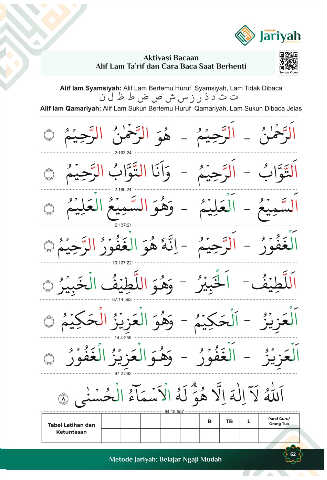 Jariyah
Aktivasi Bacaan
Alif Lam Ta'rif dan Cara Baca Saat Berhenti
Alif lam Syamsiyah: Alif Lam Bertemu Huruf Syamsiyah, Lam Tidak Dibaca
ت ث د ذ ر ز س ش ص ض ط ظ ل ن
Alif lam Qamariyah: Alif Lam Sukun Bertemu Huruf Qamariyah, Lam Sukun Dibaca Jelas
اَلرَّحْمٰنُ - اَلرَّحِيْمُ - هُوَ الرَّحْمٰنُ الرَّحِيْمُ
اَلتَّوَّابُ - اَلرَّحِيْمُ - وَاَنَا التَّوَّابُ الرَّحِيْمُ
اَلسَّمِيْعُ - اَلْعَلِيْمُ - وَهُوَ السَّمِيْعُ الْعَلِيْمُ
اَلْغَفُوْرُ - اَلرَّحِيْمُ - اِنَّهٗ هُوَ الْغَفُوْرُ الرَّحِيْمُ
اَللَّطِيْفُ - اَلْخَبِيْرُ - وَهُوَ اللَّطِيْفُ الْخَبِيْرُ
اَلْعَزِيْزُ - اَلْحَكِيْمُ - وَهُوَ الْعَزِيْزُ الْحَكِيْمُ
اَلْعَزِيْزُ - اَلْغَفُوْرُ - وَهُوَ الْعَزِيْزُ الْغَفُوْرُ
اَللّٰهُ لَآ اِلٰهَ اِلَّا هُوَ لَهُ الْاَسْمَآءُ الْحُسْنٰى ٨
Tabel Latihan dan Ketuntasan
B TB L
Paraf Guru/
Orang Tua
Metode Jariyah: Belajar Ngaji Mudah
62